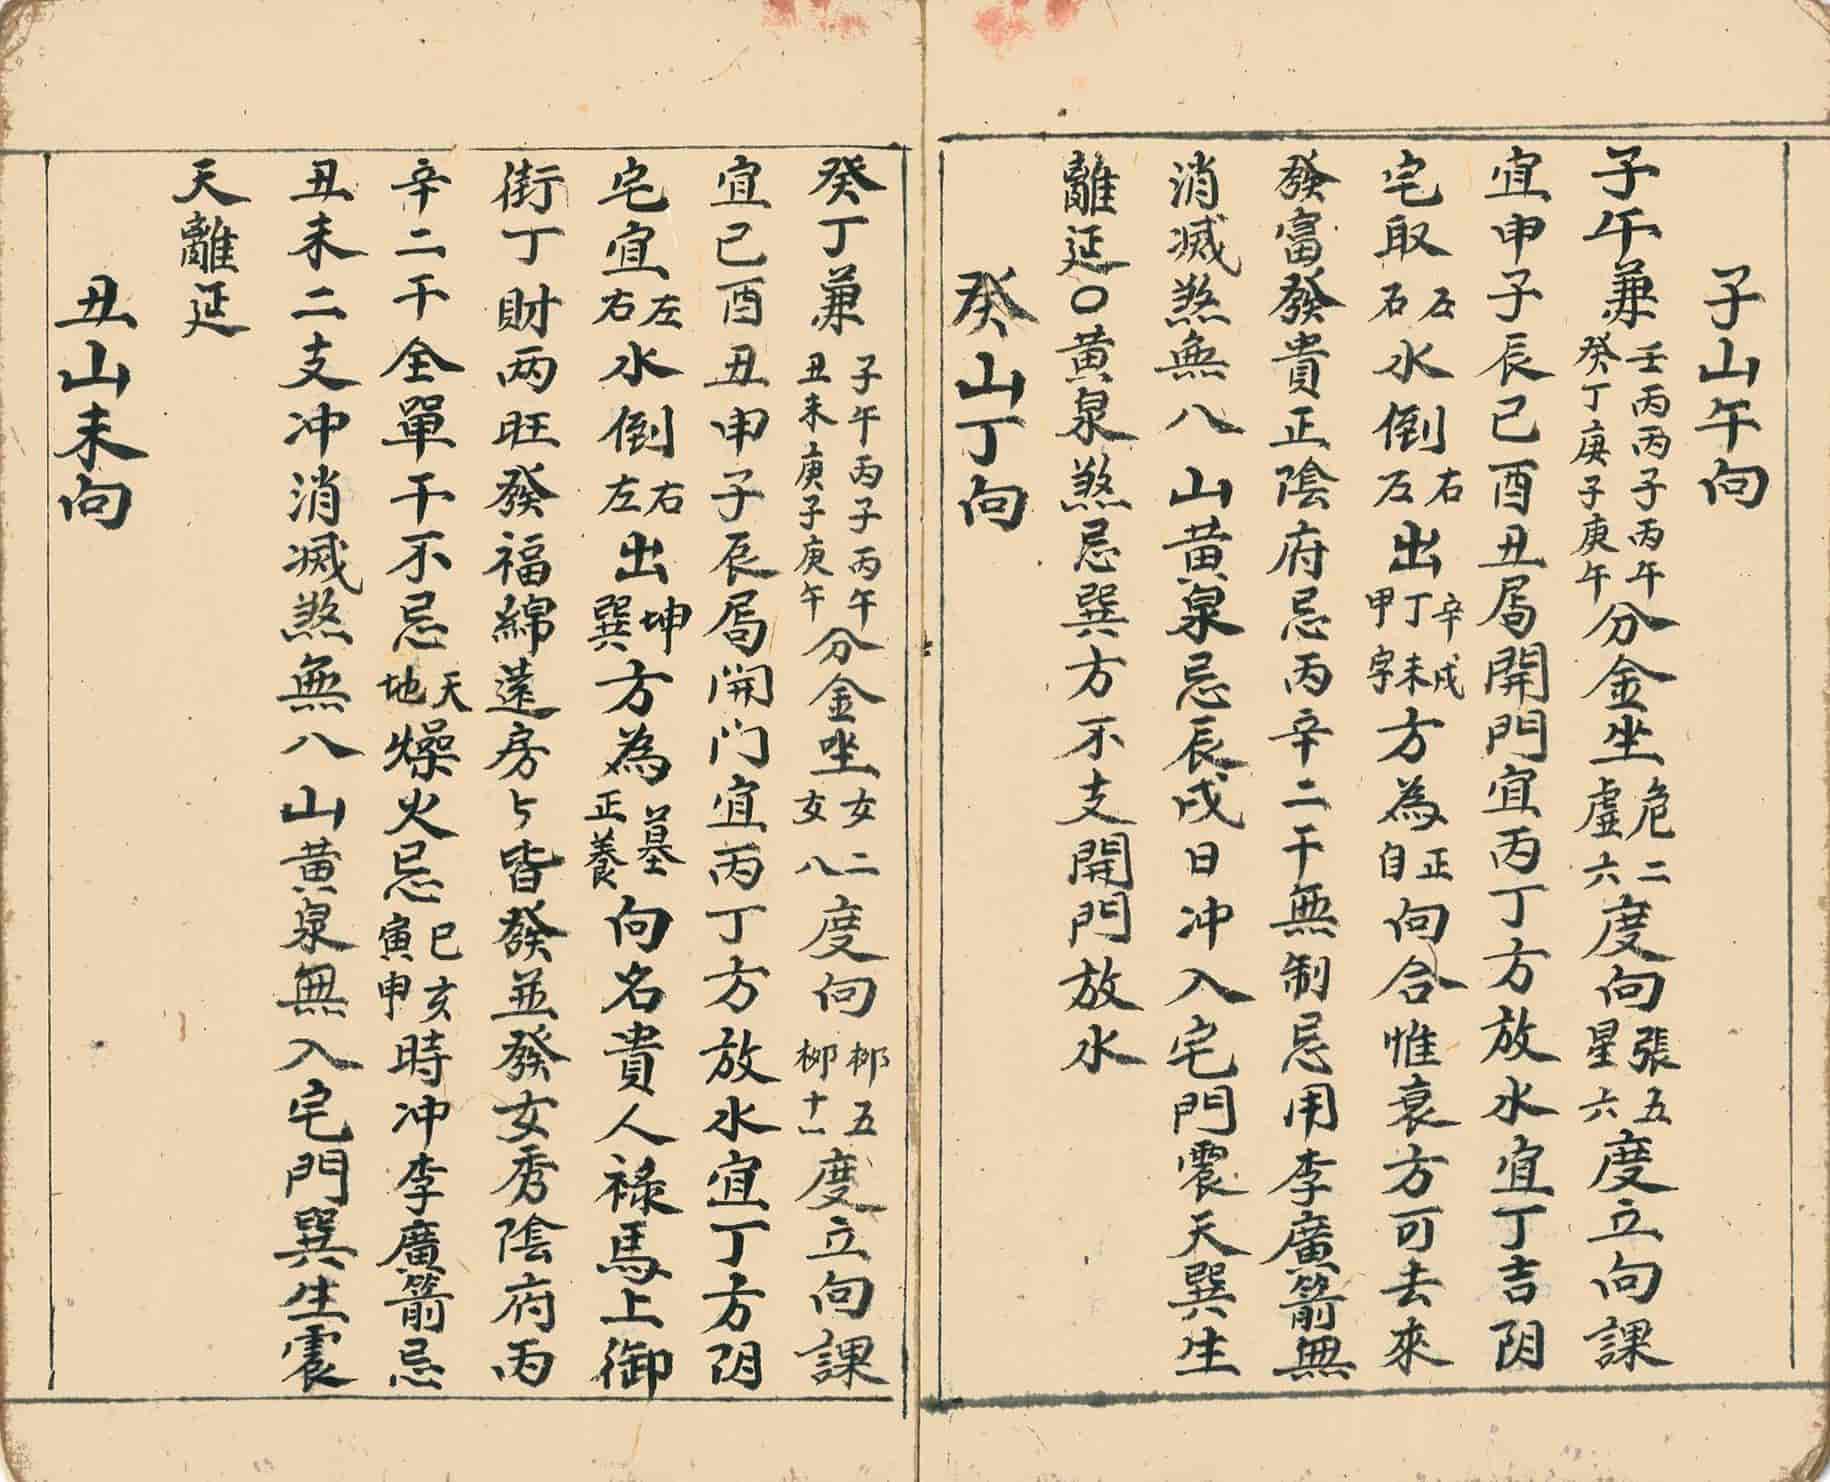 子山午向
子午兼壬丙丙子丙午癸丁庚子庚午分金坐危二虛六度向張五星六度立向課
宜申子辰巳酉丑局開門宜丙丁方放水宜丁吉阴
宅取左右水倒右左出辛戌丁未甲字方為正自向合惟衰方可去來
發富發貴正陰府忌丙辛二干無制忌用李廣箭無
消滅煞無八山黃泉忌辰戌日冲入宅門震天巽生
離延〇黃泉煞忌巽方不支開門放水
癸山丁向
癸丁兼子午丙子丙午丑未庚子庚午分金坐女二女八度向柳五柳十一度立向課
宜巳酉丑申子辰局開门宜丙丁方放水宜丁方阴
宅宜左右水倒右左出坤巽方為墓正養向名貴人祿馬上御
街丁財两旺發福綿遠房々皆發並發女秀陰府丙
辛二干全單干不忌天地燥火忌巳亥寅申時冲李廣箭忌
丑未二支冲消滅煞無八山黃泉無入宅門巽生震
天離延
丑山未向